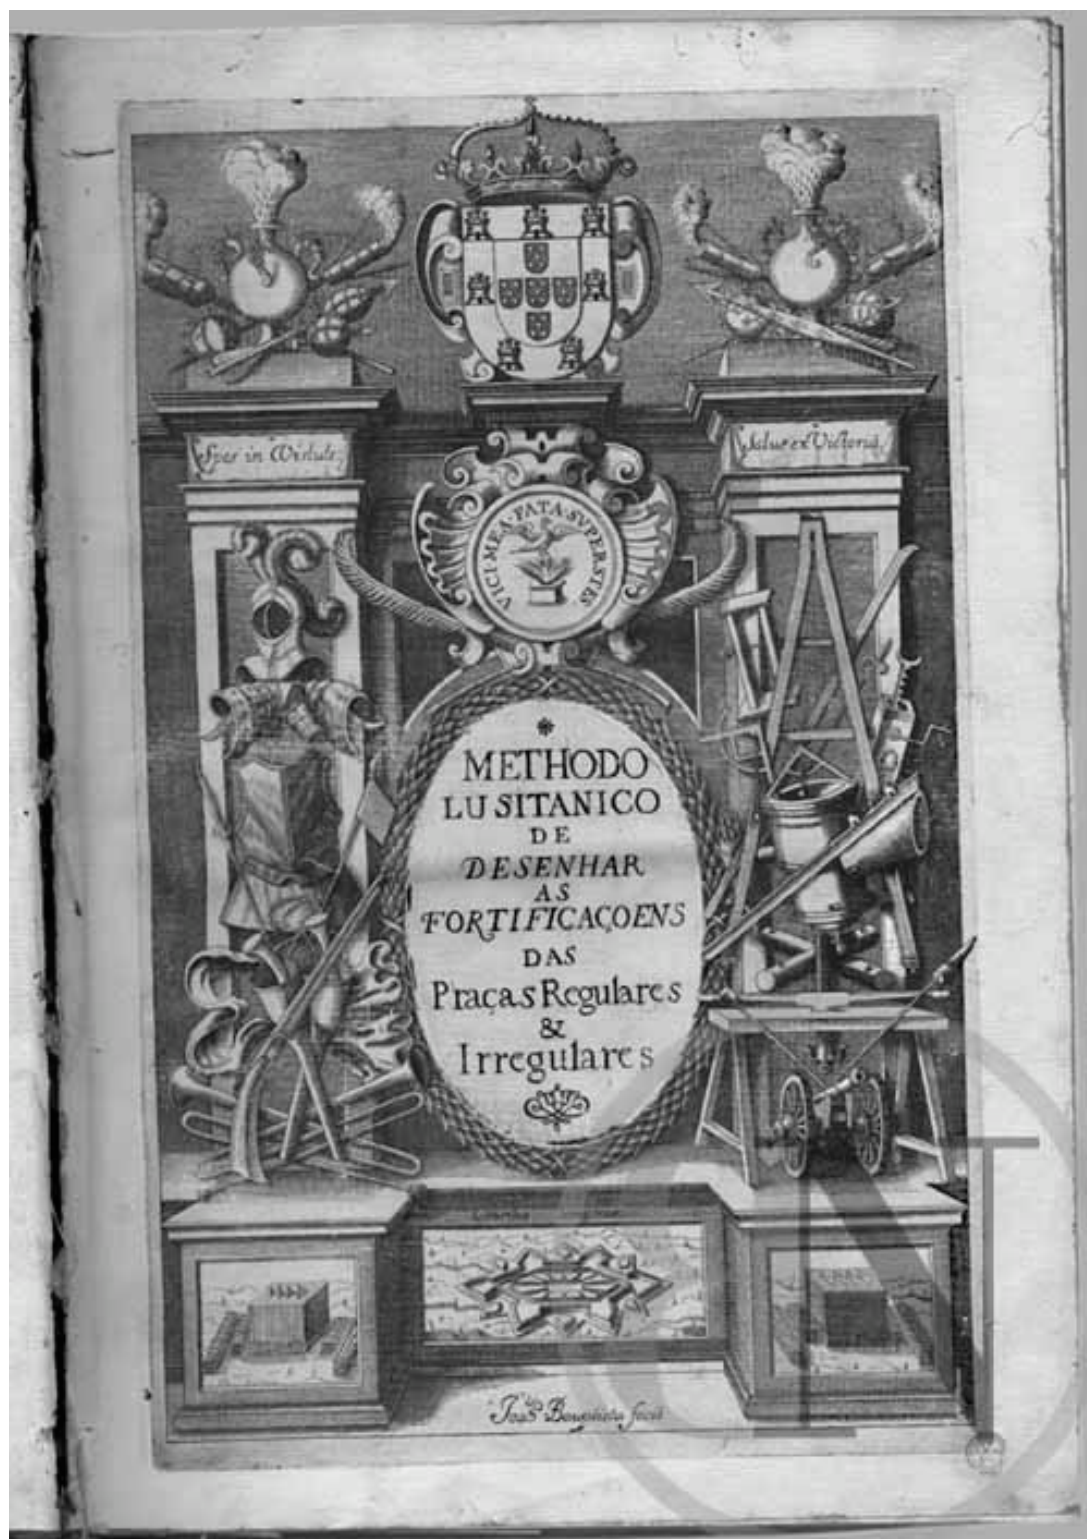 Spes in Virtute,
Salus ex Victoria,
VICI·MEA·FATA·SVPERSTES
METHODO
LUSITANICO
DE
DESENHAR
AS
FORTIFICAÇOENS
DAS
Praças Regulares
&
Irregulares
Joaõ Bauptista fecit